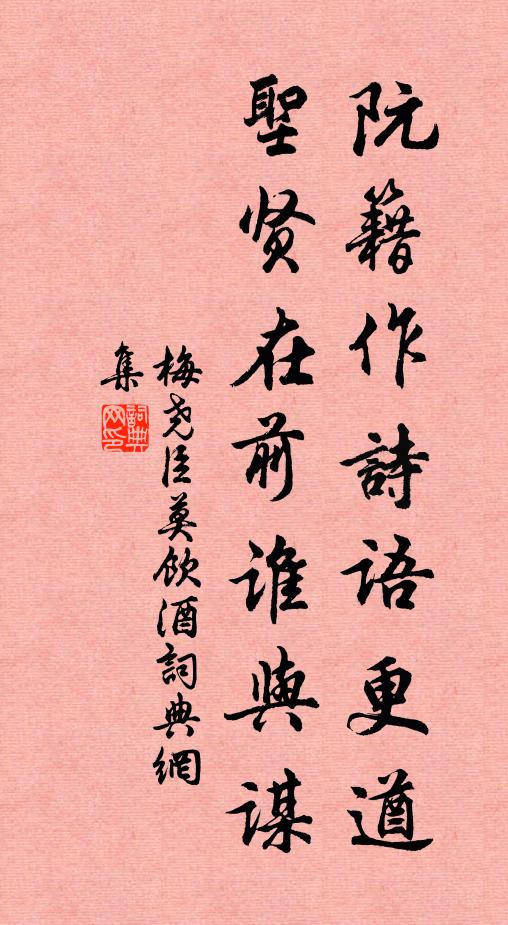 阮籍作詩語更遒
聖贤在前誰與謀
梅尧臣莫飲酒詞典網
集
詞典
网印